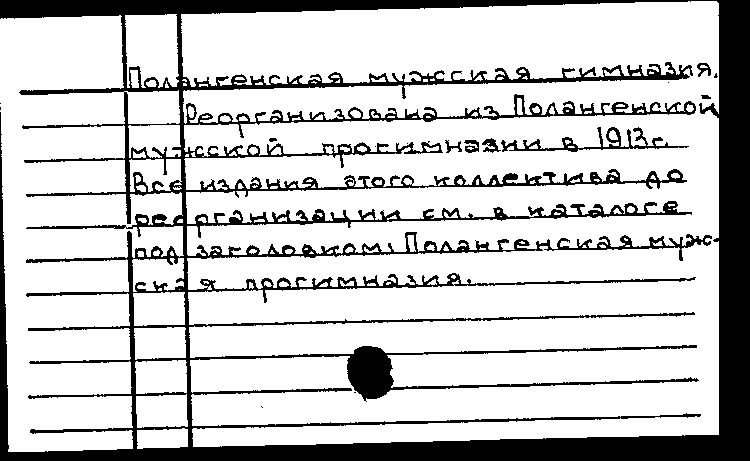 Полангенская мужская гимназия.
Реорганизована из Полангенской
мужской прогимназии в 1913г.
Все издания этого коллектива до
реорганизации см. в каталоге
под заголовком: Полангенская муж-
ская прогимназия.